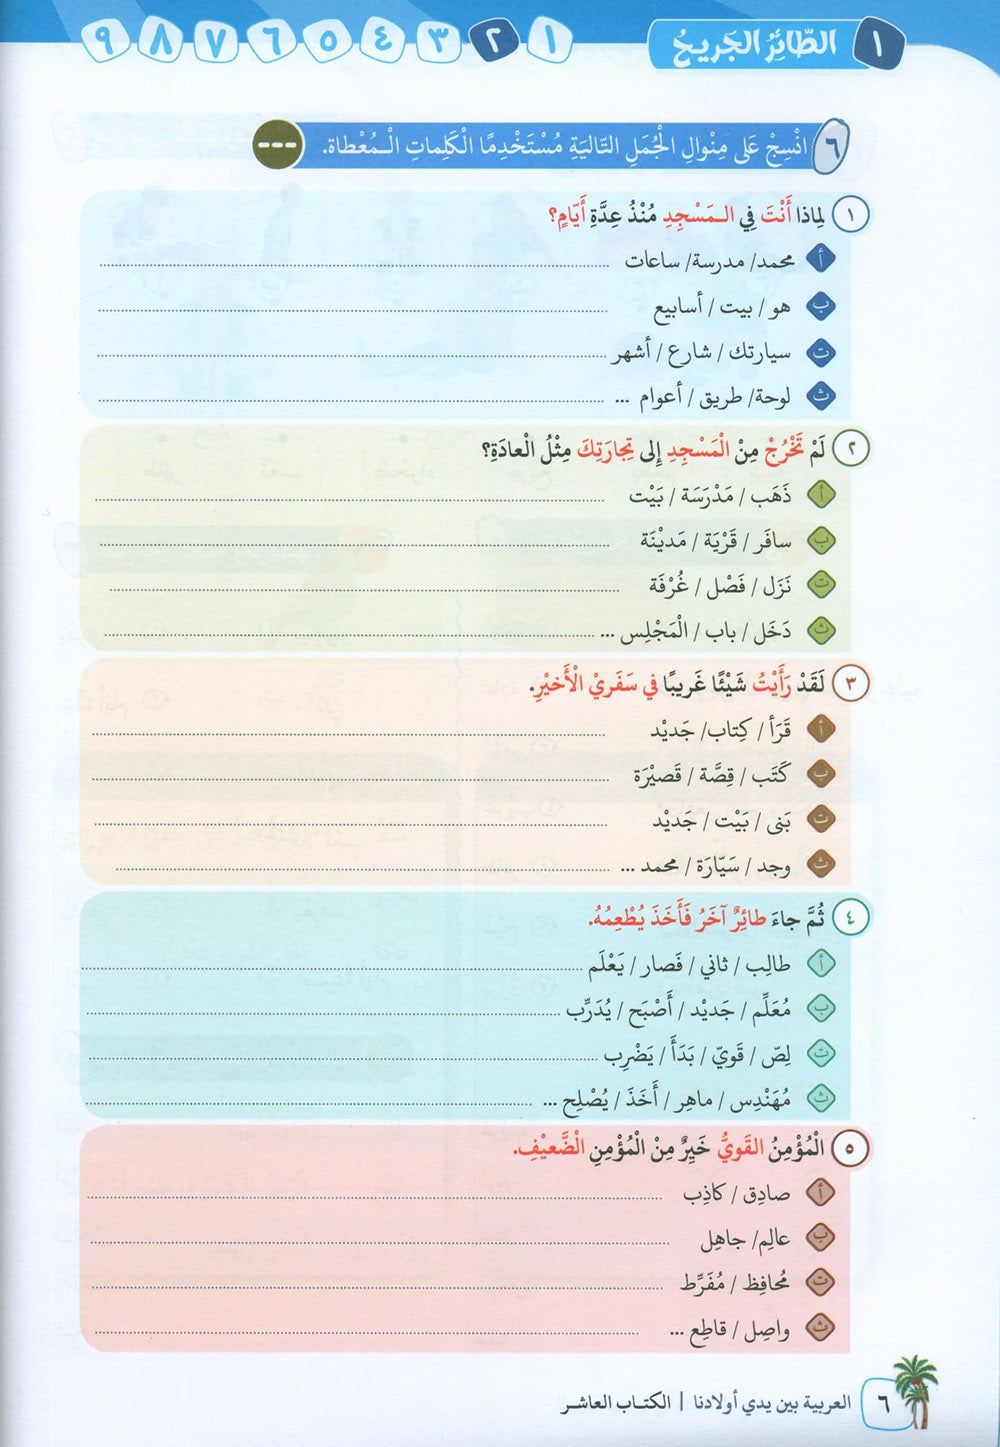 ١ الطّائِرُ الجَريحُ
١ ٢ ٣ ٤ ٥ ٦ ٧ ٨ ٩
٦ انْسِجْ عَلى مِنْوالِ الْجُمَلِ التّاليَةِ مُسْتَخْدِمًا الْكَلِماتِ الْـمُعْطاة.
١ لِماذا أَنْتَ فِي الـمَسْجِدِ مُنْذُ عِدَّةِ أَيّامٍ؟
أ محمد/ مدرسة/ ساعات
ب هو / بيت / أسابيع
ت سيارتك / شارع / أشهر
ث لوحة/ طريق / أعوام ...
٢ لَمْ تَخْرُجْ مِنْ الْمَسْجِدِ إلى تِجارَتِكَ مِثْلُ الْعادَةِ؟
أ ذَهَب / مَدْرَسَة / بَيْت
ب سافَر / قَرْيَة / مَديْنَة
ت نَزَل / فَصْل / غُرْفَة
ث دَخَل / باب / الْمَجْلِس ...
٣ لَقَدْ رَأَيْتُ شَيْئًا غَريبًا في سَفَريْ الْأَخيْرِ.
أ قَرَأ / كِتاب/ جَديْد
ب كَتَب / قِصَّة / قَصيْرَة
ت بَنى / بَيْت / جَديْد
ث وجد / سَيّارَة / محمد ...
٤ ثُمَّ جاءَ طائِرٌ آخَرُ فَأَخَذَ يُطْعِمُهُ.
أ طالِب / ثاني / فَصار / يَعْلَم
ب مُعَلِّم / جَديْد / أَصْبَح / يُدَرِّب
ت لِصّ / قَويّ / بَدَأَ / يَضْرِب
ث مُهَنْدِس / ماهِر / أَخَذَ / يُصْلِح ...
٥ الْمُؤْمِنُ القَويُّ خَيِرٌ مِنْ الْمُؤْمِنِ الْضَّعيْفِ.
أ صادِق / كاذِب
ب عالِم/ جاهِل
ت مُحافِظ / مُفَرِّط
ث واصِل / قاطِع ...
٦ العربية بين يدي أولادنا | الكتـاب العاشـر